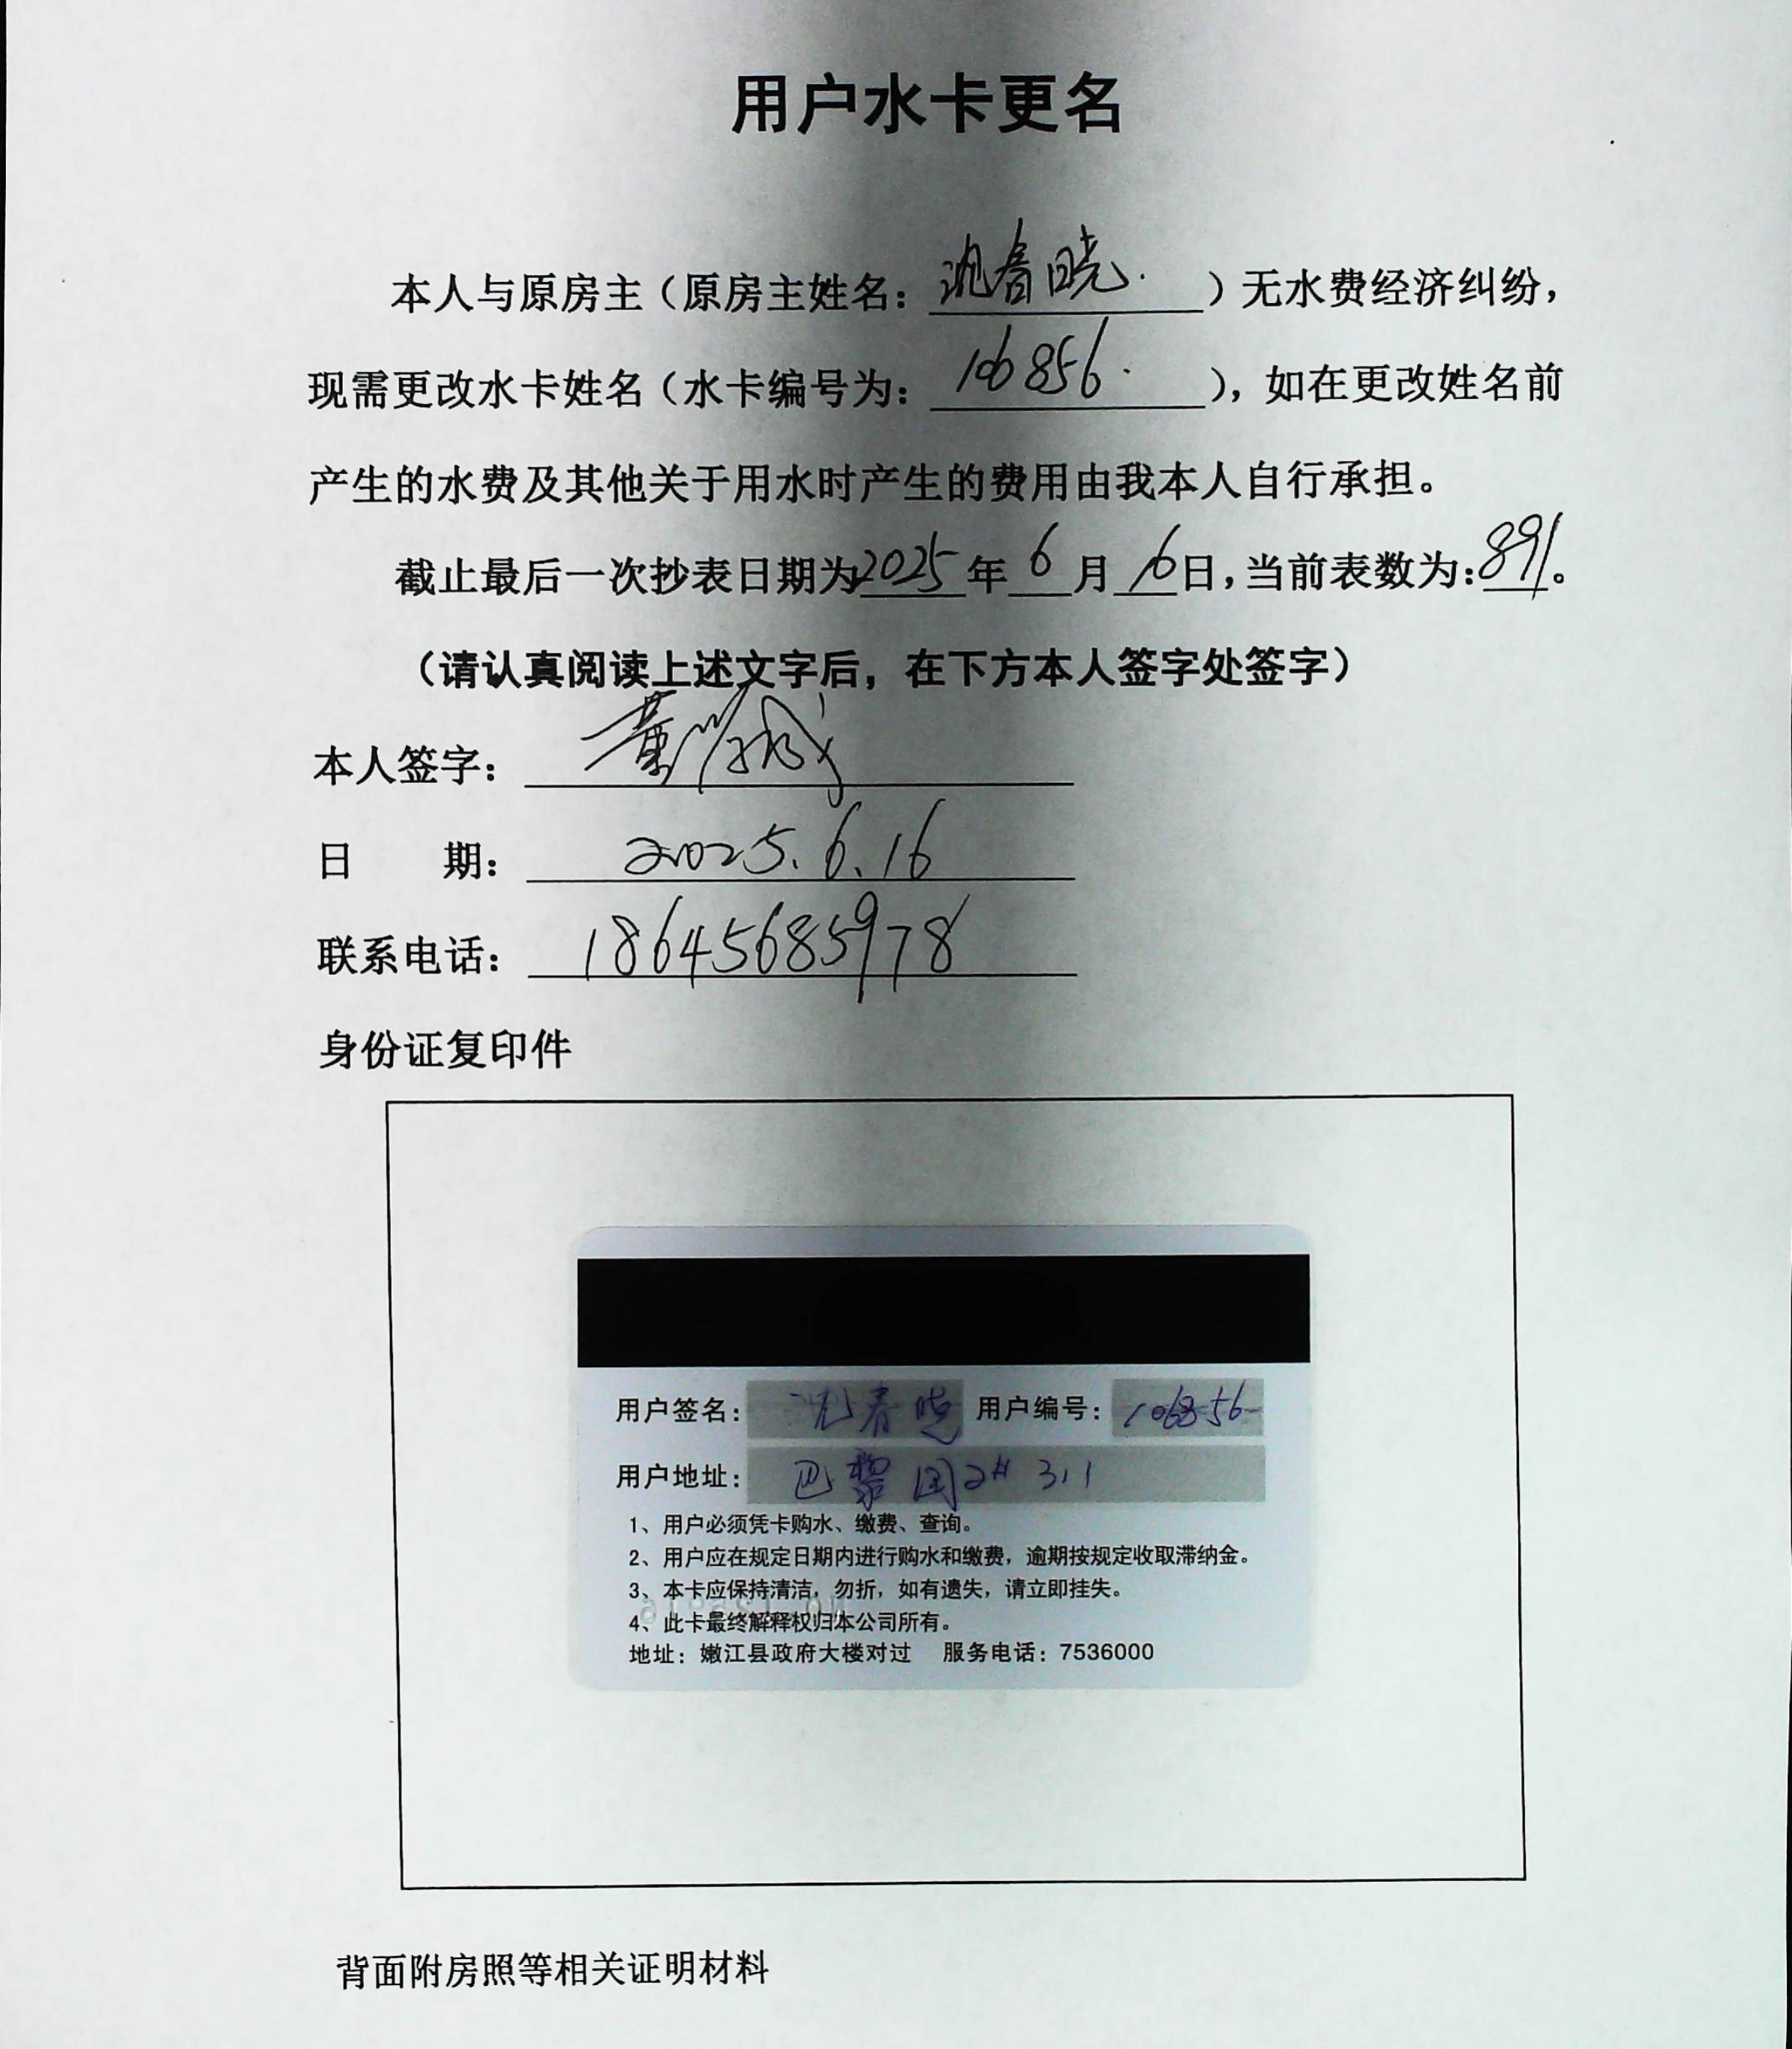 用户水卡更名
本人与原房主（原房主姓名：沈春晓）无水费经济纠纷，
现需更改水卡姓名（水卡编号为：106856），如在更改姓名前
产生的水费及其他关于用水时产生的费用由我本人自行承担。
截止最后一次抄表日期为2025年6月16日，当前表数为：891。
（请认真阅读上述文字后，在下方本人签字处签字）
本人签字：
日 期：2025.6.16
联系电话：18645685978
身份证复印件
用户签名：沈春晓 用户编号：106856
用户地址：巴黎园2# 311
1、用户必须凭卡购水、缴费、查询。
2、用户应在规定日期内进行购水和缴费，逾期按规定收取滞纳金。
3、本卡应保持清洁，勿折，如有遗失，请立即挂失。
4、此卡最终解释权归本公司所有。
地址：嫩江县政府大楼对过 服务电话：7536000
背面附房照等相关证明材料